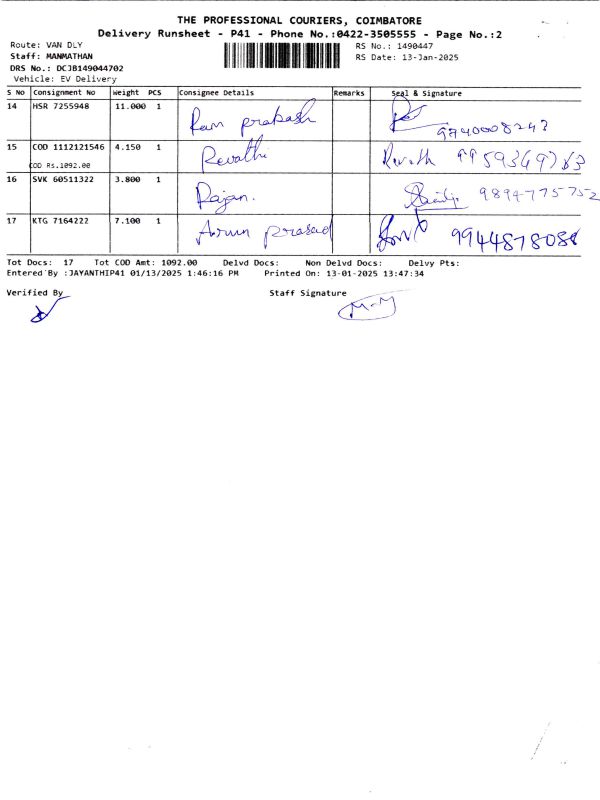 THE PROFESSIONAL COURIERS, COIMBATORE
Delivery Runsheet - P41 - Phone No.:0422-3505555 - Page No.:2
Route: VAN DLY RS No.: 1490447
Staff: MANMATHAN RS Date: 13-Jan-2025
DRS No.: DCJB149044702
Vehicle: EV Delivery
S No Consignment No Weight PCS Consignee Details Remarks Seal & Signature
14 HSR 7255948 11.000 1 Ram prakash 9940008243
15 COD 1112121546 4.150 1 Revathi Revath
COD Rs.1092.00
16 SVK 60511322 3.800 1 Rajan. 9894775752
17 KTG 7164222 7.100 1 Arun prasad 9944878088
Tot Docs: 17 Tot COD Amt: 1092.00 Delvd Docs: Non Delvd Docs: Delvy Pts:
Entered By :JAYANTHIP41 01/13/2025 1:46:16 PM Printed On: 13-01-2025 13:47:34
Verified By Staff Signature
M-M